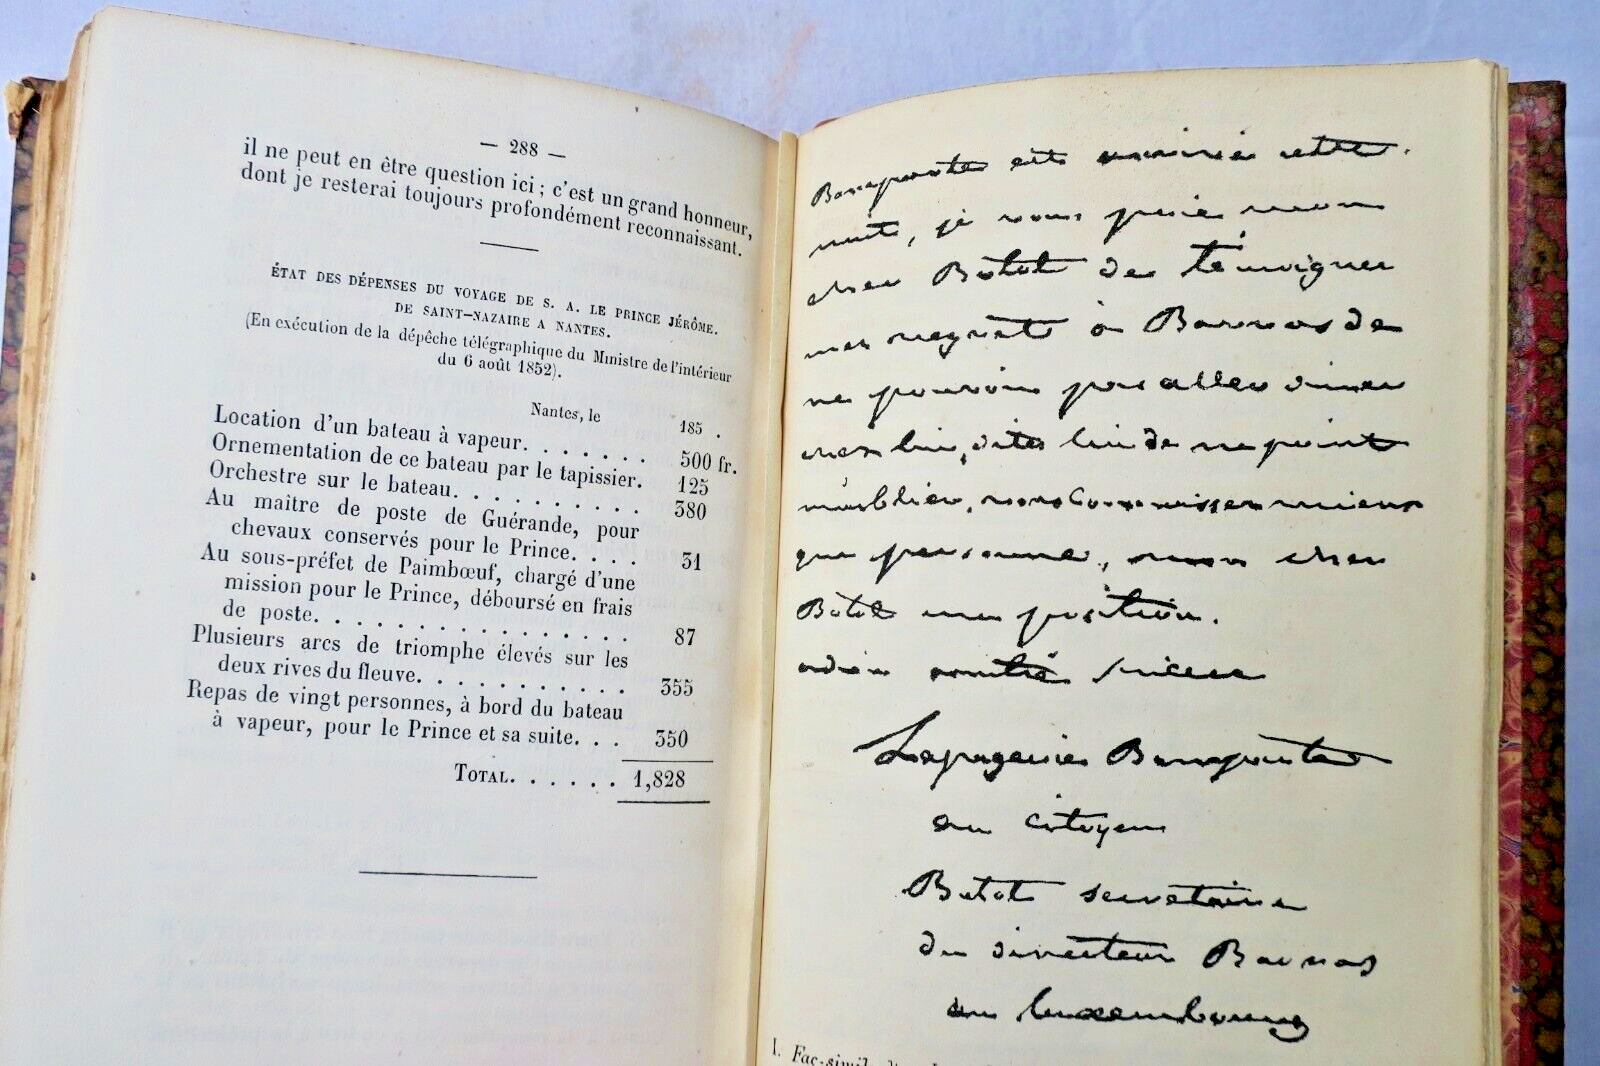 — 288 —
il ne peut en être question ici ; c'est un grand honneur,
dont je resterai toujours profondément reconnaissant.
ÉTAT DES DÉPENSES DU VOYAGE DE S. A. LE PRINCE JÉRÔME.
DE SAINT-NAZAIRE A NANTES.
(En exécution de la dépêche télégraphique du Ministre de l'intérieur
du 6 août 1852).
Nantes, le 185 .
Location d'un bateau à vapeur. . . . . . . 500 fr.
Ornementation de ce bateau par le tapissier. 125
Orchestre sur le bateau. . . . . . . . . . 380
Au maître de poste de Guérande, pour
chevaux conservés pour le Prince. . . . 31
Au sous-préfet de Paimbœuf, chargé d'une
mission pour le Prince, déboursé en frais
de poste. . . . . . . . . . . . . . . . . 87
Plusieurs arcs de triomphe élevés sur les
deux rives du fleuve. . . . . . . . . . . 355
Repas de vingt personnes, à bord du bateau
à vapeur, pour le Prince et sa suite. . . 350
TOTAL. . . . . . 1,828
Bonaparte est arrivé cette
nuit, je vous prie mon
cher Botot de témoigner
mes regrets à Barras de
ne pouvoir pas aller diner
chez lui, dites lui de ne point
m'oublier, vous connaissez mieux
que personne, mon cher
Botot ma position.
adieu amitié sincere
Lapagerie Bonaparte
au citoyen
Botot secretaire
du directeur Barras
au luxembourg
1. Fac-simil